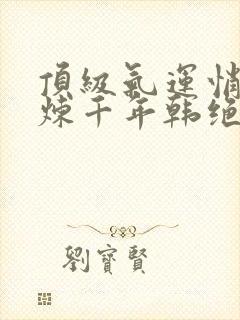 頂級氣運悄
煉千年韩绝
劉寶賢